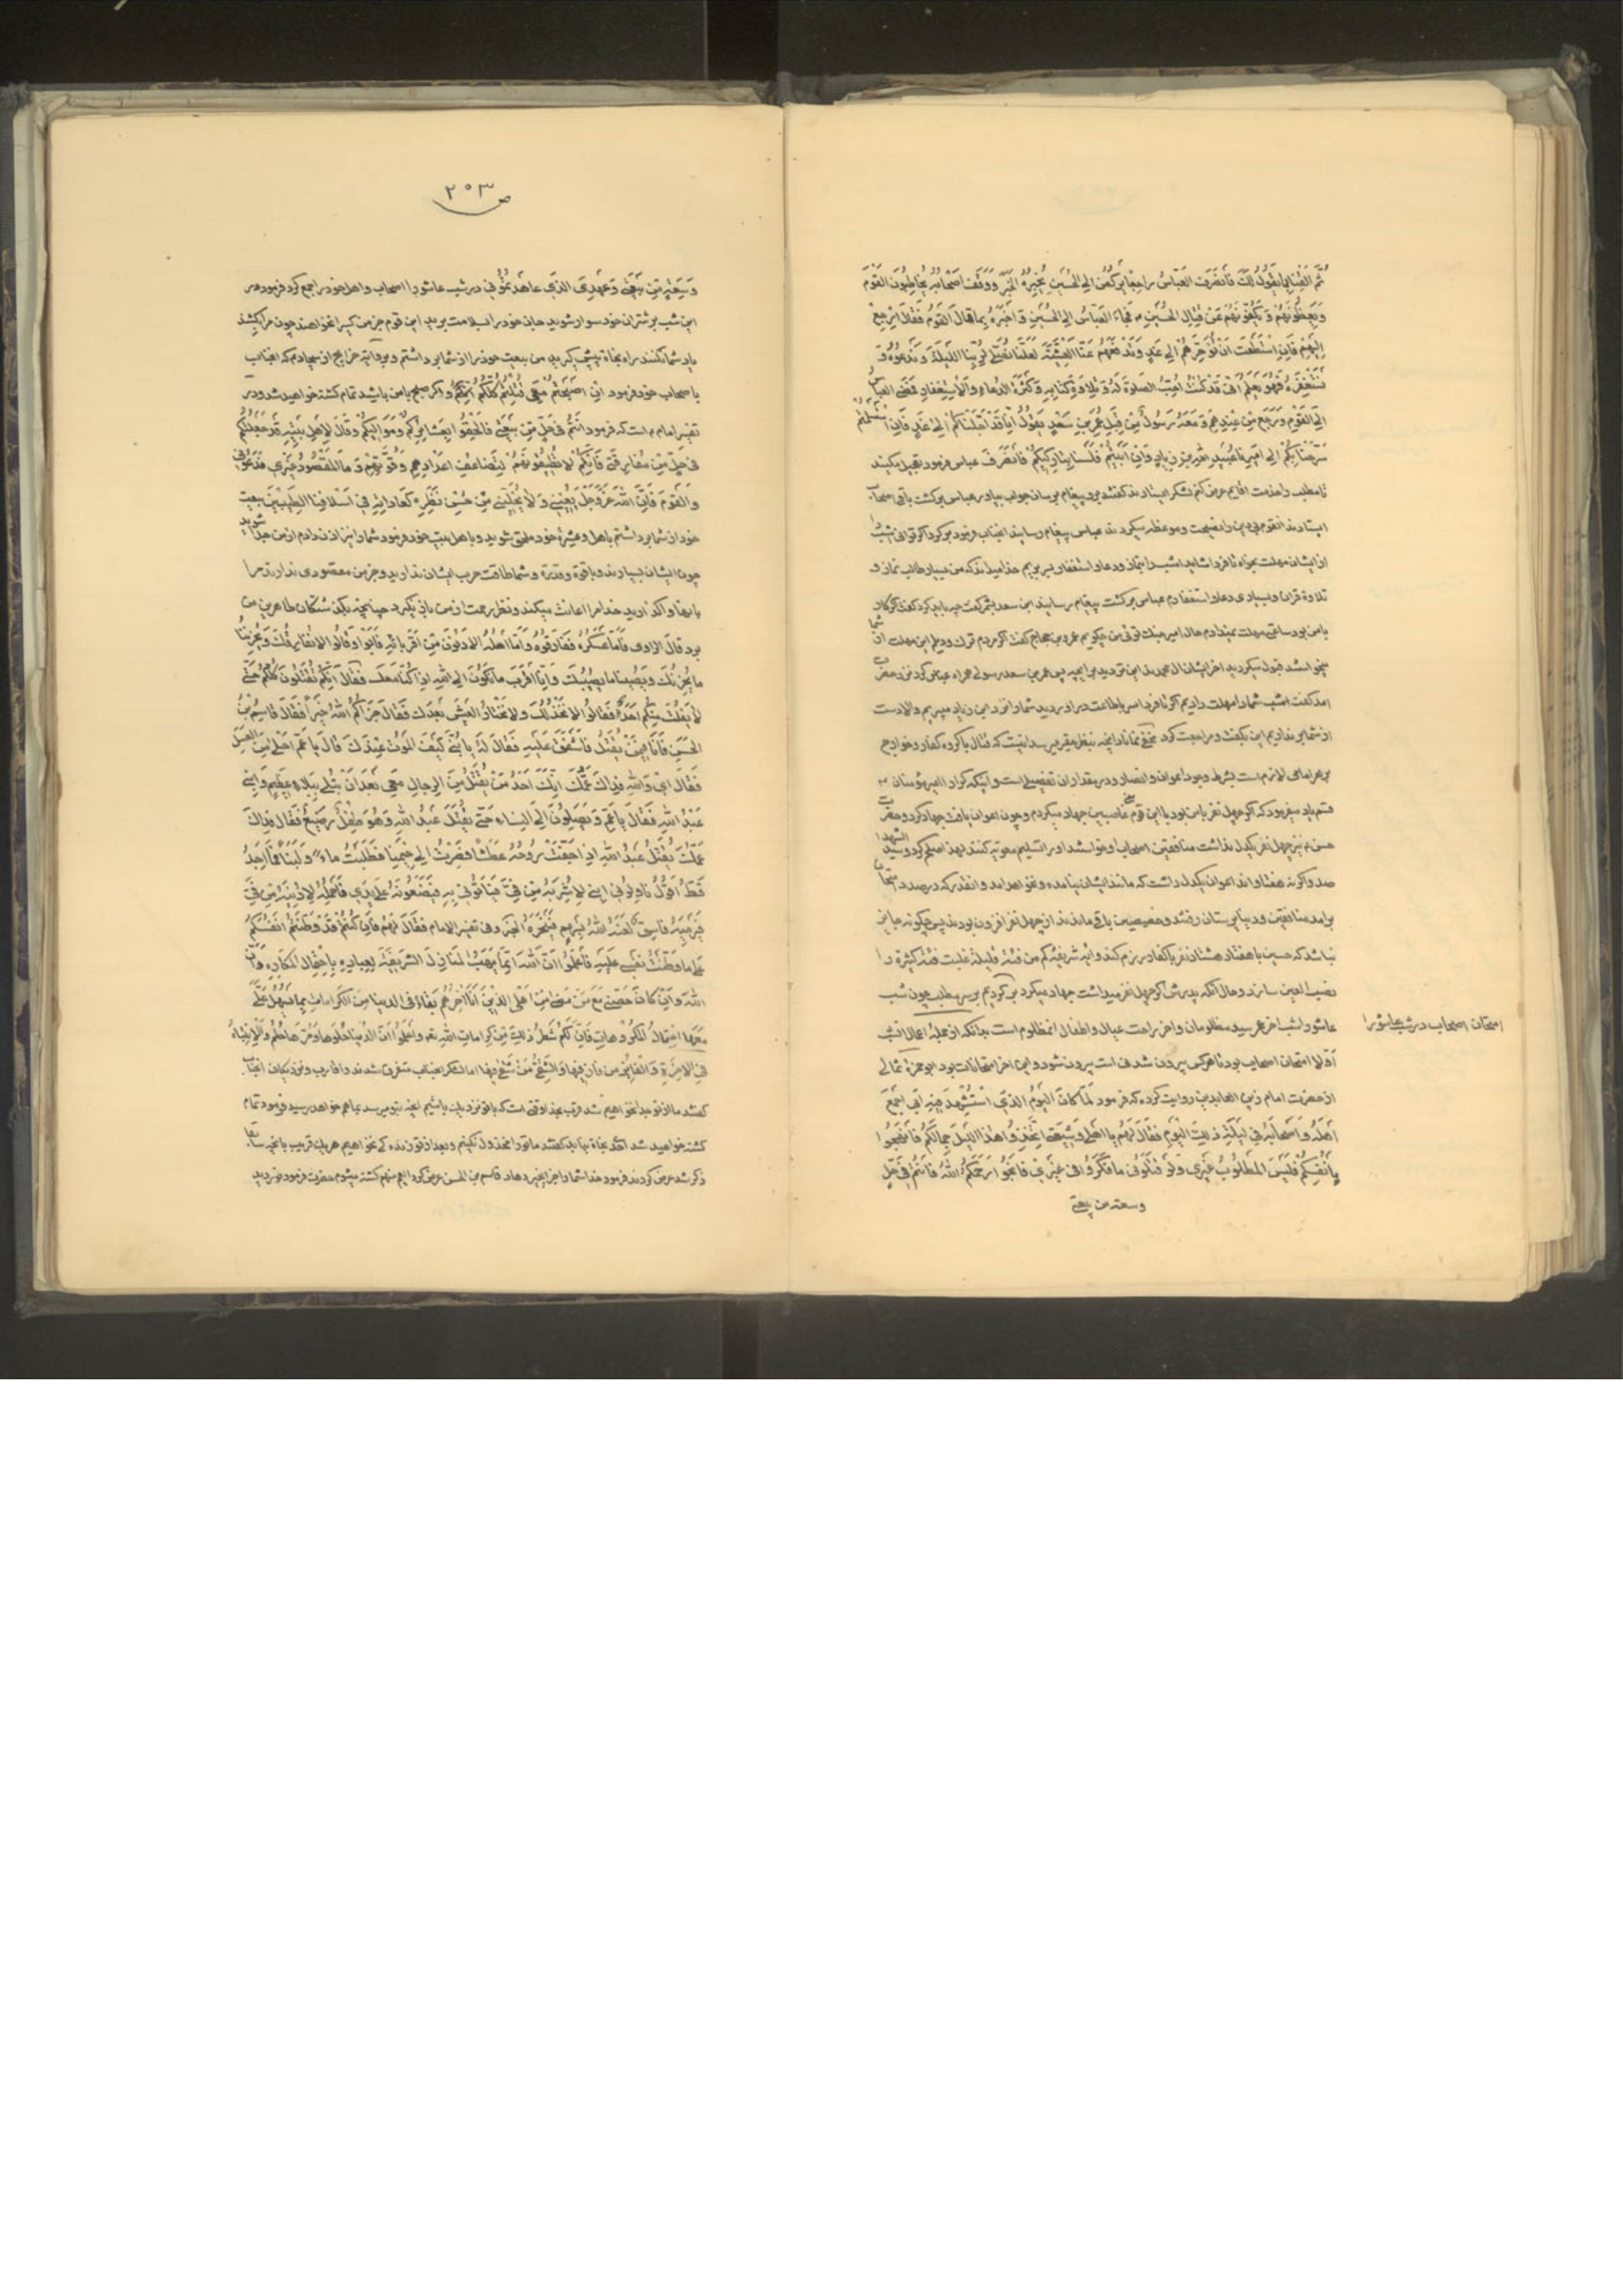 ثُمَّ القِنا بِما يَقُولُ لَكَ فَانصَرَفَ العَبّاسُ راجِعاً يَركُضُ اِلَی الحُسَینِ یُخبِرُهُ الخَبَرَ وَوَقَفَ اَصحابُهُ یُخاطِبُونَ القَومَ
وَیَعِظُونَهُم وَیَکُفُّونَهُم عَن قِتالِ الحُسَینِ فَجاءَ العَبّاسُ اِلَی الحُسَینِ وَاَخبَرَهُ بِما قالَ القَومُ فَقالَ اِرجِع
اِلَیهِم فَاِنِ استَطَعتَ اَن تُؤَخِّرَهُم اِلی غَدٍ وَتَدفَعَهُم عَنَّا العَشِیَّةَ لَعَلَّنا نُصَلّی لِرَبِّنَا اللَّیلَةَ وَنَدعُوهُ وَ
نَستَغفِرَهُ فَهُوَ یَعلَمُ اَنّی قَد کُنتُ اُحِبُّ الصَّلوةَ لَهُ وَتِلاوَةَ کِتابِهِ وَکَثرَةَ الدُّعاءِ وَالاِستِغفارِ فَمَضَی العَبّاسُ
اِلَی القَومِ وَرَجَعَ مِن عِندِهِم وَمَعَهُ رَسُولٌ مِن قِبَلِ عُمَرِ بنِ سَعدٍ یَقُولُ اِنّا قَد اَجَّلناکُم اِلی غَدٍ فَاِنِ استَسلَمتُم
سَرَّحنا بِکُم اِلی اَمیرِنا عُبَیدِ اللهِ بنِ زِیادٍ وَاِن اَبَیتُم فَلَسنا بِتارِکیکُم فَانصَرَفَ عباس فرمود تعجیل مکنید
تا مطلب را خدمت اقایم عرض کنم لشکر ایستادند گفتند برو پیغام برسان جواب بیاور عباس برگشت باقی اصحاب
ایستادند انقوم بی دین را نصیحت و موعظه میکردند عباس پیغام رسانید انجناب فرمود برگرد اگر توانی شب را
از ایشان مهلت بخواه تا فردا شاید امشب را بنماز و دعا و استغفار بسر بریم خدا میداند که من بسیار طالب نماز و
تلاوة قران و بسیاری دعا و استغفارم عباس برگشت پیغام رسانید ابن سعد بشمر گفت چه باید کرد گفت اگر کار
با من بود ساعتی مهلت نمیدادم حال امیر جنک توئی من چگویم عمرو بن حجاج گفت اگر مردم ترک و دیلم این مهلت از شما
میخواستند قبول میکردید اخر ایشان ال محمدند این تردید برای چیه پس عمر بن سعد رسولی همراه عباس کرد نزد حضرت
امد گفت امشب شما را مهلت دادیم اگر تا فردا سر باطاعت در اوردید شما را نزد ابن زیاد میبریم والا دست
از شما بر نداریم این بگفت و مراجعت کرد
بر هر امامی لازم است بشرط وجود اعوان و انصار و در مقدار ان تفصیلی است و اینکه مکرر امیر مؤمنان
قسم یاد میفرمود که اگر چهل نفر با من بود با این قوم غاصبین جهاد میکردم و چون اعوان یافت جهاد کرد و حضرت
حسن نیز چهل نفر یکدل نداشت منافقین اصحاب او خواستند او را تسلیم معویه کنند لهذا صلح کرد و سید الشهدا
صد و اگر نه هفتاد و اند اعوان یکدل داشت که مانند ایشان نیامده و نخواهد امد و انقدر که در صدد امتحان
برامد منافقین و دنیا پرستان رفتند و مخصصین باقی ماندند از چهل نفر افزون بودند پس چگونه جایز
نباشد که حسین با هفتاد هشتاد نفر با کفار رزم کند و ایه شریفه کم من فئة قلیلة غلبت فئة کثیرة را
نصب العین سازند و حال انکه پدرش اگر چهل نفر میداشت جهاد میکرد برگردیم بر سر مطلب چون شب
عاشورا شب اخر عمر سید مظلومان و اخر راحت عیال و اطفال انمظلوم است بدانکه از جمله اعمال انشب
امتحان اصحاب در شب عاشورا
اولا امتحان اصحاب بود تا هر کس بیرون شدنی است بیرون شود و این اخر امتحانات بود ابو حمزه ثمالی
از حضرت امام زین العابدین روایت کرده که فرمود لَمّا کانَ الیَومُ الَّذی استُشهِدَ فیهِ اَبی جَمَعَ
اَهلَهُ وَاَصحابَهُ فی لَیلَةِ ذلِکَ الیَومِ فَقالَ لَهُم یا اَهلی وَشیعَتی اتَّخِذُوا هٰذَا اللَّیلَ جَمَلاً لَکُم فَانجُوا
بِاَنفُسِکُم فَلَیسَ المَطلُوبُ غَیری وَلَو قَتَلُونی ما فَکَّرُوا فی غَیری فَانجُوا رَحِمَکُمُ اللهُ فَاَنتُم فی حِلٍّ
وسعة من بیعتی
ص ۲۵۳
وَسَعَةٍ مِن بَیعَتی وَعَهدِیَ الَّذی عاهَدتُمُونی در شب عاشورا اصحاب و اهل خود را جمع کرد فرمود در
این شب بر شتران خود سوار شوید جان خود را بسلامت برید این قوم جز من کسی را نخواهند چون مرا بکشند
یاد شما نکنند راه نجاة پیش گیرید من بیعت خود را از شما برداشتم و بروایة خرایج از سجادم که انجناب
با صحاب خود فرمود اِن اَصبَحتُم مَعی قُتِلتُم کُلُّکُم اگر صبح با من باشید تمام کشته خواهید شد و در
تفسیر امام است که فرمود اَنتُم فی حِلٍّ مِن بَیعَتی فَالحَقُوا بِعَشائِرِکُم وَمَوالیکُم وَقالَ لِاَهلِ بَیتِهِ قَد جَعَلتُکُم
فی حِلٍّ مِن مُفارِقَتی فَاِنَّکُم لا تُطیقُونَهُم لِتَضاعُفِ اَعدادِهِم وَقُوّتِهِم وَمَا المَقصُودُ غَیری فَدَعُونی
وَالقَومَ فَاِنَّ اللهَ عَزَّوَجَلَّ یُعینُنی وَلا یُخلینی مِن حُسنِ نَظَرِهِ کَعاداتِهِ فی اَسلافِنَا الطَّیِّبینَ بیعت
خود از شما برداشتم باهل و عشیره خود ملحق شوید و باهل بیت خود فرمود شما را نیز اذن دادم از من جدا شوید
چون ایشان بسیارند و با قوة و قدرة و شما طاقت حرب ایشان ندارید و جز من مقصودی ندارند مرا
بانها واگذارید خدا مرا اعانت میکند و نظر رحمت از من باز نگیرد چنانچه بگذشتگان طاهرین من
بود قالَ الراوی فَاَمّا عَسکَرُهُ فَفارَقُوهُ وَاَمّا اَهلُهُ الاَدنَونَ مِن اَقرِبائِهِ فَاَبَوا وَقالُوا لا نُفارِقُکَ وَیَحزُنُنا
ما یَحزُنُکَ وَیُصیبُنا ما یُصیبُکَ وَاِنّا اَقرَبُ ما نَکُونُ اِلَی اللهِ اِذا کُنّا مَعَکَ فَقالَ اِنَّکُم تُقتَلُونَ کُلُّکُم حَتّی
لا یُفلِتُ مِنکُم اَحَدٌ فَقالُوا لا نَخذُلُکَ وَلا نَختارُ العَیشَ بَعدَکَ فَقالَ جَزاکُمُ اللهُ خَیراً فَقالَ قاسِمُ بنُ
الحَسَنِ فَاَنا فیمَن یُقتَلُ فَاَشفَقَ عَلَیهِ فَقالَ لَهُ یا بُنَیَّ کَیفَ المَوتُ عِندَکَ قالَ یا عَمِّ اَحلی مِنَ العَسَلِ
فَقالَ ای وَاللهِ فِداکَ عَمُّکَ اِنَّکَ اَحَدُ مَن یُقتَلُ مِنَ الرِّجالِ مَعی بَعدَ اَن تُبلی بِبَلاءٍ عَظیمٍ وَابنی
عَبدُ اللهِ فَقالَ یا عَمِّ وَیَصِلُونَ اِلَی النِّساءِ حَتّی یُقتَلَ عَبدُ اللهِ وَهُوَ طِفلٌ رَضیعٌ فَقالَ فِداکَ
عَمُّکَ یُقتَلُ عَبدُ اللهِ اِذا جَفَّت رُوحُهُ عَطَشاً وَصِرتُ اِلی خِیَمِنا فَطَلَبتُ ماءً وَلَبَناً فَلا اَجِدُ
قَطُّ اَقُولُ ناوِلُونی ابنی لِاُشرِبَهُ مِن فیَّ فَیَاتُونی بِهِ فَیَضَعُونَهُ عَلی یَدی فَاَحمِلُهُ لِاُدنِیَهُ مِن فیَّ
فَیَرمیهِ فاسِقٌ لَعَنَهُ اللهُ بِسَهمٍ فَیَنحَرُهُ الخبر و فی تفسیر الامام فَقالَ لَهُم فَاِن کُنتُم قَد وَطَّنتُم اَنفُسَکُم
عَلی ما وَطَّنتُ نَفسی عَلَیهِ فَاعلَمُوا اَنَّ اللهَ اِنَّما یَهَبُ المَنازِلَ الشَّریفَةَ لِعِبادِهِ بِاحتِمالِ المَکارِهِ وَاَنَّ
اللهَ وَاِن کانَ خَصَّنی مَعَ مَن مَضی مِن اَهلِیَ الَّذینَ اَنَا اخِرُهُم بَقاءً فِی الدُّنیا مِنَ الکَراماتِ بِما یَسهُلُ عَلَیَّ
مَعَهَا احتِمالُ المَکرُوهاتِ فَاِنَّ لَکُم شَطرَ ذلِکَ مِن کَراماتِ اللهِ وَاعلَمُوا اَنَّ الدُّنیا حُلوَها وَمُرَّها حُلُمٌ وَالاِنتِباهُ
فِی الاخِرَةِ وَالفائِزُ مَن فازَ فیها وَالشَّقِیُّ مَن شَقِیَ فیها اما لشکر انجناب متفرق شدند و اقارب و نزدیکان انجناب
گفتند ما از تو جدا نخواهیم شد قرب بخدا وقتی است که با تو نزدیک باشیم انچه بتو میرسد بما هم خواهد رسید فرمود تمام
کشته خواهید شد احدی نجاة نیابد گفتند ما تو را مخذول نکنیم و بعد از تو زندگی نخواهیم هر یک قریب بانچه سابقا
ذکر شد عرض کردند فرمود خدا شما را جزای خیر دهاد قاسم بن الحسن عرض کرد ایا من هم کشته میشوم حضرت فرمود